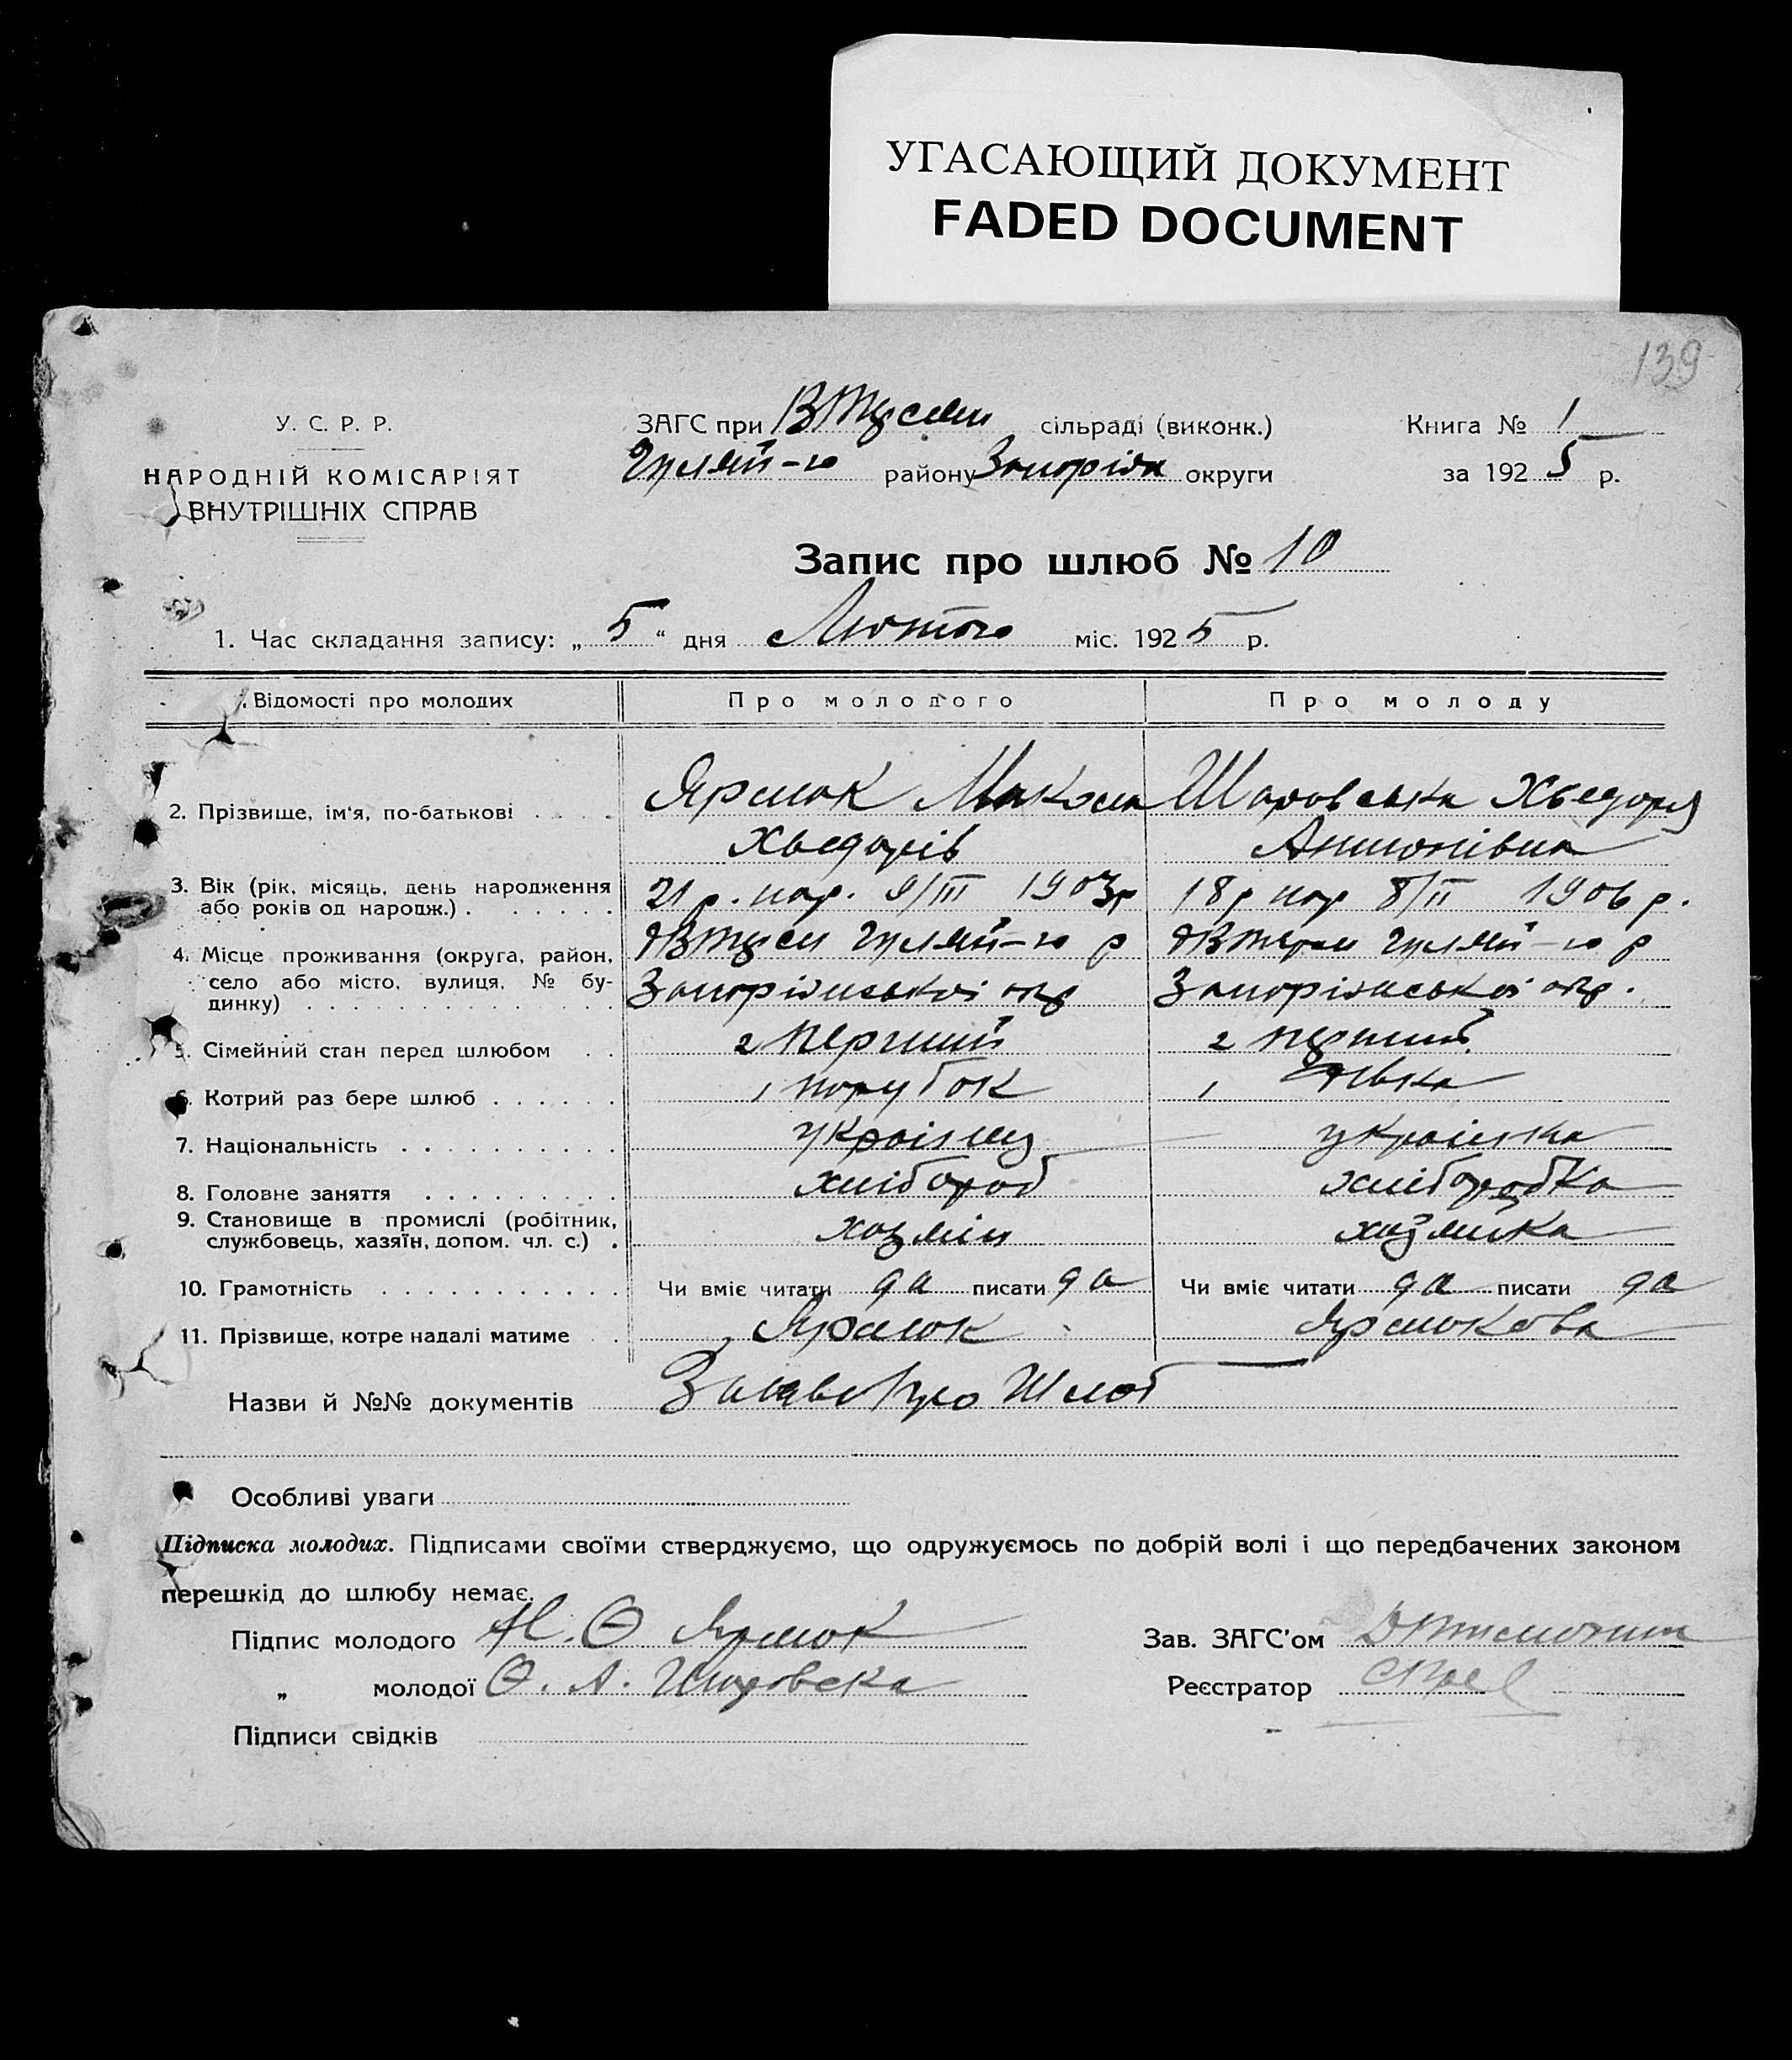 УГАСАЮЩИЙ ДОКУМЕНТ
FADED DOCUMENT
139
У. С. Р. Р.
НАРОДНІЙ КОМІСАРІЯТ
ВНУТРІШНІХ СПРАВ
ЗАГС при сільраді (виконк.)
Гуляй-го району округи
Книга № 1
за 1925 р.
Запис про шлюб № 10
1. Час складання запису: „ 5 “ дня Лютого міс. 1925 р.
Відомості про молодих Про молодого Про молоду
2. Прізвище, ім'я, по-батькові . . . . Ярмок Микола Шаровська Хьедора
Хьедорів Антонівна
3. Вік (рік, місяць, день народження 21 р. нар. 9/III 1903р 18р нар 8/II 1906 р.
або років од народж.) . . . . . .
4. Місце проживання (округа, район, Гуляй-го р Гуляй-го р
село або місто, вулиця, № бу- Запоріжської окр Запоріжської окр.
динку) . . . . . . . . . . . . . .
5. Сімейний стан перед шлюбом . . 2 перший 2 перший
6. Котрий раз бере шлюб . . . . . . 1 парубок 1 дівка
7. Національність . . . . . . . . . . українец українка
8. Головне заняття . . . . . . . . . хлібороб хліборобка
9. Становище в промислі (робітник,
службовець, хазяїн, допом. чл. с.) . хазяін хазяйка
10. Грамотність . . . . . . . . . . . Чи вміє читати да писати да Чи вміє читати да писати да
11. Прізвище, котре надалі матиме . . Ярмок Ярмокова
Назви й №№ документів Заява про Шлюб
Особливі уваги
Підписка молодих. Підписами своїми стверджуємо, що одружуємось по добрій волі і що передбачених законом
перешкід до шлюбу немає.
Підпис молодого Н. Ѳ Ярмок Зав. ЗАГС'ом
„ молодої Ѳ. А. Шаровска Реєстратор
Підписи свідків